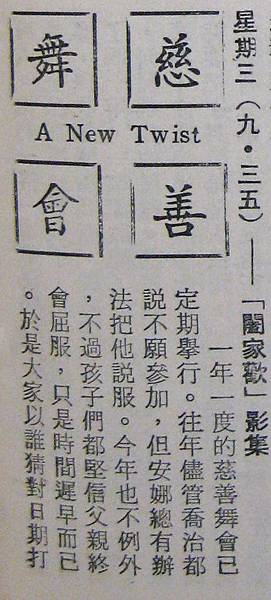 星期三（九·三五）——「闔家歡」影集
慈善
舞會
A New Twist
一年一度的慈善舞會已
定期舉行。往年儘管喬治都
說不願參加，但安娜總有辦
法把他說服。今年也不例外
，不過孩子們都堅信父親終
會屈服，只是時間遲早而已
。於是大家以誰猜對日期打